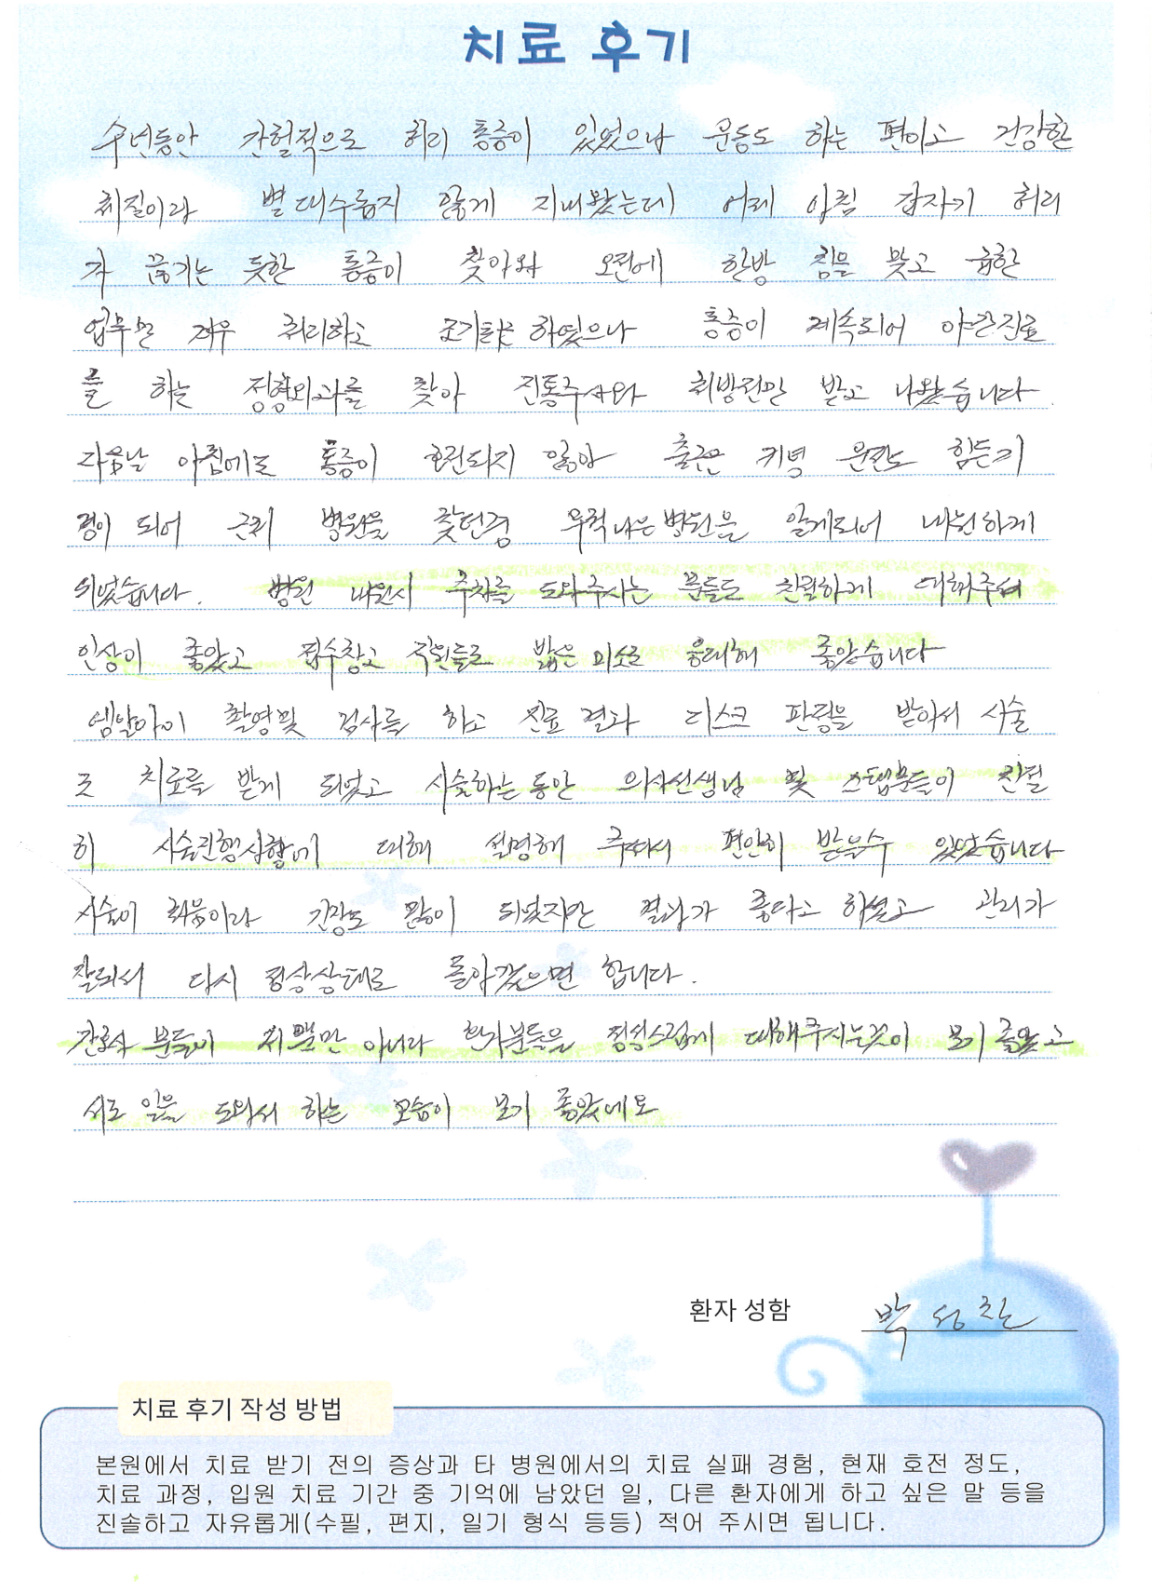 치료 후기
수년동안 간헐적으로 허리 통증이 있었으나 운동도 하는 편이고 건강한
체질이라 별 대수롭지 않게 지내왔는데 어제 아침 갑자기 허리
가 끊기는 듯한 통증이 찾아와 오전에 한방 침을 맞고 급한
업무만 겨우 처리하고 조기퇴근 하였으나 통증이 계속되어 야간진료
를 하는 정형외과를 찾아 진통주사와 처방전만 받고 나왔습니다
다음날 아침에도 통증이 호전되지 않아 출근은 커녕 운전도 힘든지
경이 되어 근처 병원을 찾던중 우척나은병원을 알게되어 내원하게
되었습니다. 병원 내원시 주차를 도와주시는 분들도 친절하게 대해주셔
인상이 좋았고 접수창고 직원들도 밝은 미소로 응대해 좋았습니다
엠알아이 촬영및 검사를 하고 진료 결과 디스크 판정을 받아서 시술
로 치료를 받게 되었고 시술하는동안 의사선생님 및 스텝분들이 친절
히 시술진행상황에 대해 설명해 주셔서 편안히 받을수 있었습니다
시술이 처음이라 긴장도 많이 되었지만 결과가 좋다고 하셨고 관리가
잘되서 다시 정상상태로 돌아갔으면 합니다.
간호사 분들이 뿐만 아니라 환자분들을 정성스럽게 대해주시는것이 보기 좋았고
서로 일을 도와서 하는 모습이 보기 좋았네요
환자 성함 박성찬
치료 후기 작성 방법
본원에서 치료 받기 전의 증상과 타 병원에서의 치료 실패 경험, 현재 호전 정도,
치료 과정, 입원 치료 기간 중 기억에 남았던 일, 다른 환자에게 하고 싶은 말 등을
진솔하고 자유롭게(수필, 편지, 일기 형식 등등) 적어 주시면 됩니다.